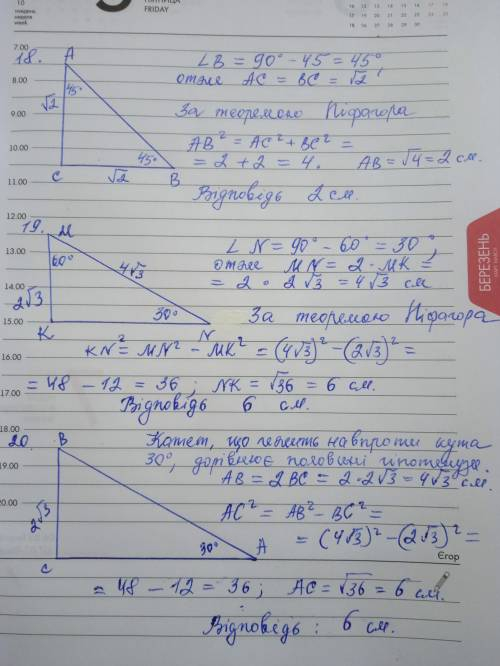 П'ЯТНИЦЯ
FRIDAY
10
тиждень
week
7.00
8.00
9.00
10.00
11.00
12.00
13.00
14.00
15.00
16.00
17.00
18.00
19.00
20.00
БЕРЕЗЕНЬ
Єгор
18.
A
45°
√2
C
√2
45°
B
∠B = 90° - 45 = 45°,
отже AC = BC = √2,
За теоремою Піфагора
AB² = AC² + BC² =
= 2 + 2 = 4. AB = √4 = 2 см.
Відповідь 2 см.
19.
M
60°
4√3
2√3
K
30°
N
∠N = 90° - 60° = 30°,
отже MN = 2 · MK =
= 2 · 2√3 = 4√3 см
За теоремою Піфагора
KN² = MN² - MK² = (4√3)² - (2√3)² =
= 48 - 12 = 36; NK = √36 = 6 см.
Відповідь 6 см.
20
B
2√3
C
30°
A
Катет, що лежить навпроти кута
30°, дорівнює половині гіпотенузи.
AB = 2BC = 2·2√3 = 4√3 см.
AC² = AB² - BC² =
= (4√3)² - (2√3)² =
= 48 - 12 = 36; AC = √36 = 6 см.
Відповідь: 6 см.